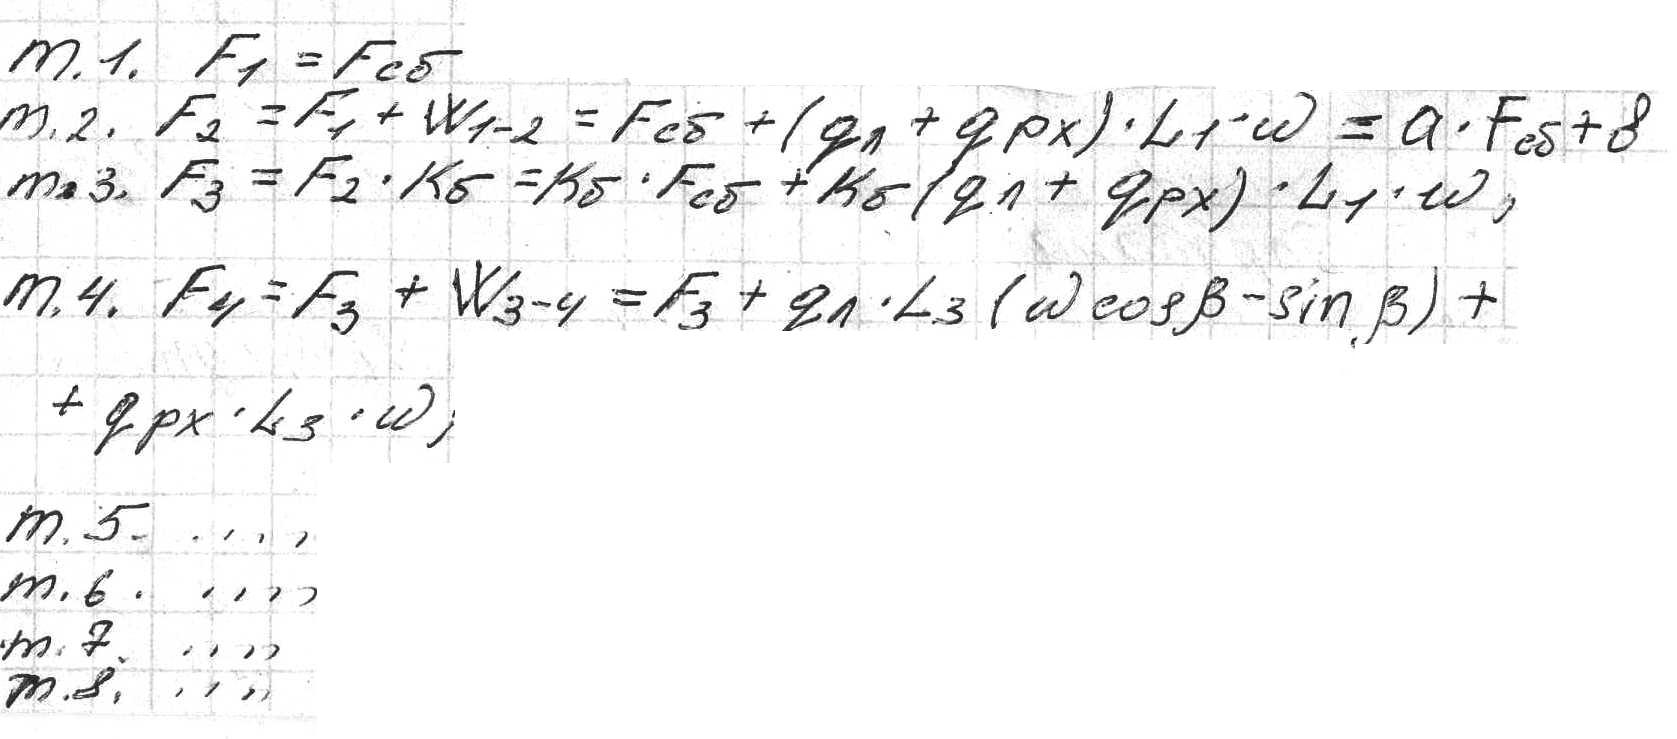 т.1. F₁ = Fсб
т.2. F₂ = F₁ + W₁₋₂ = Fсб + (qл + qрх)·L₁·w = a·Fсб + в
т.3. F₃ = F₂·Kб = Kб·Fсб + Kб(qл + qрх)·L₁·w,
т.4. F₄ = F₃ + W₃₋₄ = F₃ + qл·L₃(w cosβ - sinβ) +
+ qрх·L₃·w;
т.5. ....
т.6. ....
т.7. ....
т.8. ....